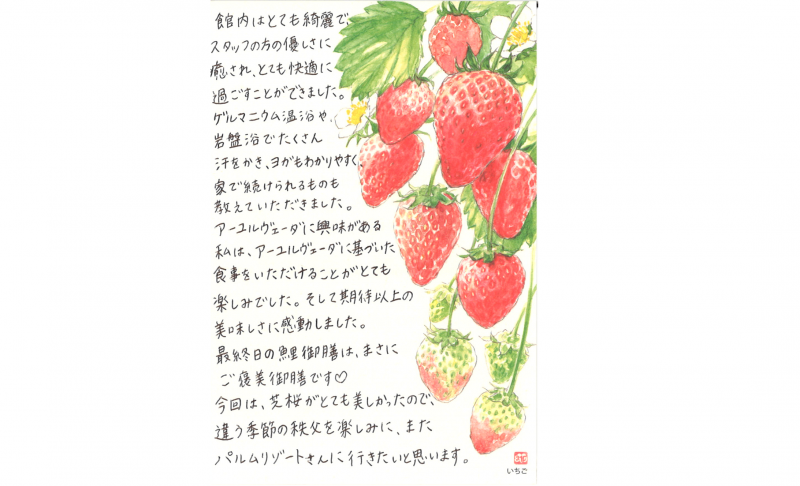 館内はとても綺麗で、
スタッフの方の優しさに
癒され、とても快適に
過ごすことができました。
ゲルマニウム温浴や、
岩盤浴でたくさん
汗をかき、ヨガもわかりやすく、
家で続けられるものも
教えていただきました。
アーユルヴェーダに興味がある
私は、アーユルヴェーダに基づいた
食事をいただけることがとても
楽しみでした。そして期待以上の
美味しさに感動しました。
最終日の鯉御膳は、まさに
ご褒美御膳です♡
今回は、芝桜がとても美しかったので、
違う季節の秩父を楽しみに、また
パルムリゾートさんに行きたいと思います。
いちご